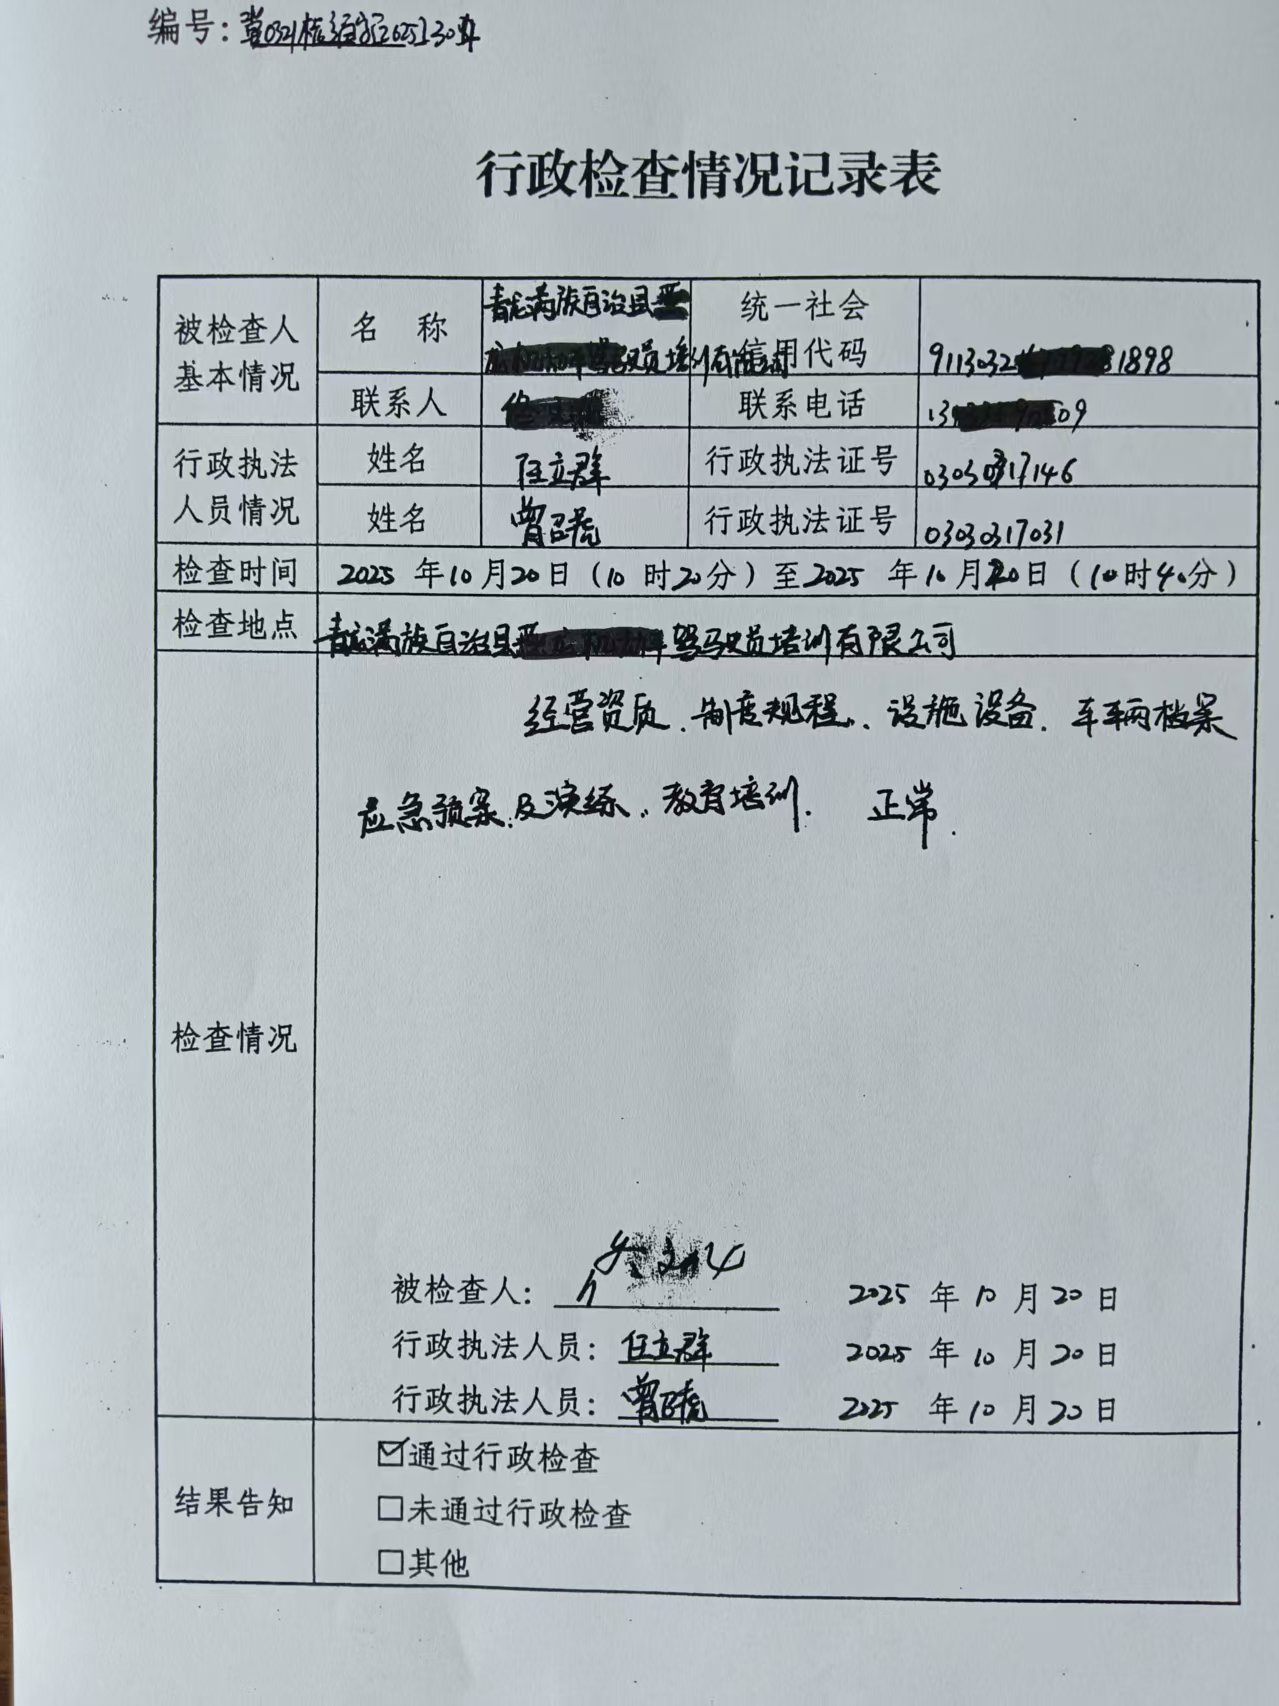 编号：冀0321
行政检查情况记录表
被检查人基本情况
名 称
青龙满族自治县
驾驶员培训有限公司
统一社会信用代码
9113032 81898
联系人
联系电话
13 09
行政执法人员情况
姓名 任立群 行政执法证号 03030317146
姓名 曾 行政执法证号 03030317031
检查时间 2025 年10月20日（10 时20分）至2025 年10月20日（10时40分）
检查地点 青龙满族自治县 驾驶员培训有限公司
检查情况
经营资质、制度规程、设施设备、车辆档案
应急预案及演练、教育培训. 正常.
被检查人： 2025 年 10 月 20 日
行政执法人员：任立群 2025 年 10 月 20 日
行政执法人员：曾 2025 年 10 月 20 日
结果告知
☑通过行政检查
□未通过行政检查
□其他